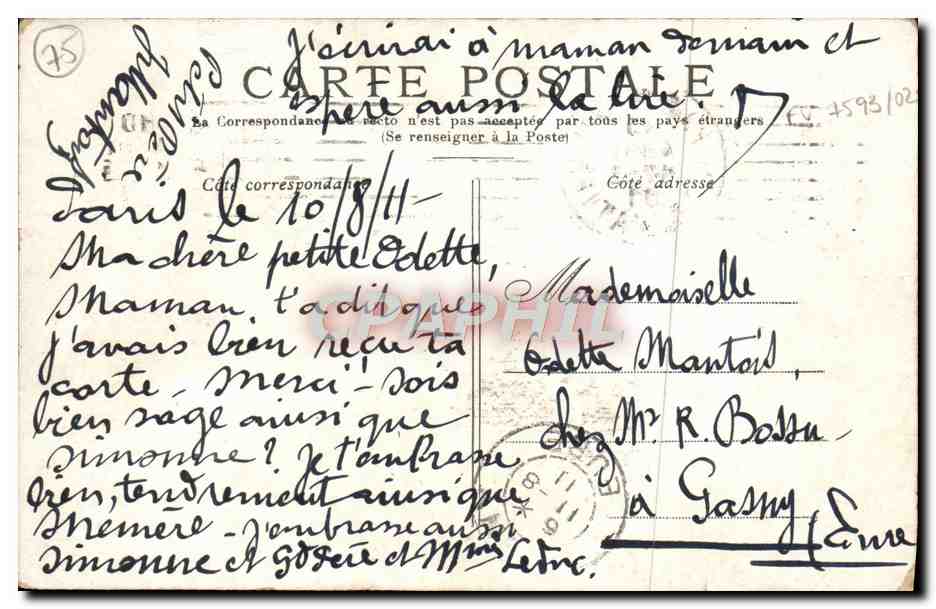 75
J'écrirai à maman demain et
CARTE POSTALE
espère aussi la lire.
EU 7593/02
La Correspondance au recto n'est pas acceptée par tous les pays étrangers
(Se renseigner à la Poste)
Côté correspondance
Côté adresse
Paris le 10/8/11-
Ma chère petite Odette,
Maman t'a dit que
j'avais bien reçu ta
carte - Merci - Sois
bien sage ainsi que
Simonne? Je t'embrasse
bien, tendrement ainsi que
Mémère - J'embrasse aussi
Simonne et et Mme Leduc.
Mademoiselle
Odette Mantois,
chez Mr R. Bossu
à Gasny
(Eure
CPAPHIL
EURE
11 -8 11